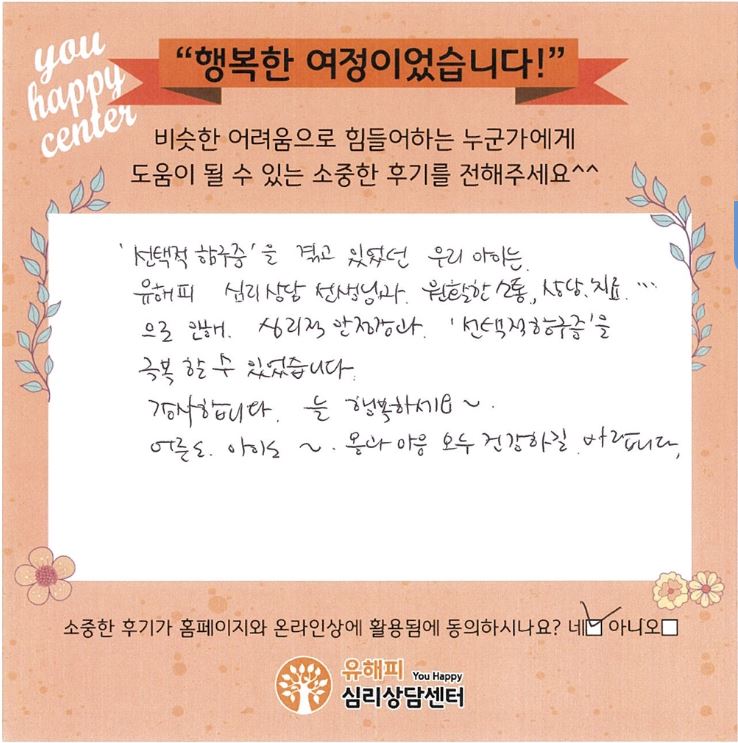 you
happy
center
“행복한 여정이었습니다!”
비슷한 어려움으로 힘들어하는 누군가에게
도움이 될 수 있는 소중한 후기를 전해주세요^^
'선택적 함구증'을 겪고 있었던 우리 아이는
유해피 심리상담 선생님과 원활한 소통, 상담.치료...
으로 인해. 심리적 안정감과. '선택적함구증'을
극복 할 수 있었습니다.
감사합니다. 늘 행복하세요~.
어른도. 아이도 ~. 몸과 마음 모두 건강하길 바랍니다.
소중한 후기가 홈페이지와 온라인상에 활용됨에 동의하시나요? 네 아니오
유해피 You Happy
심리상담센터